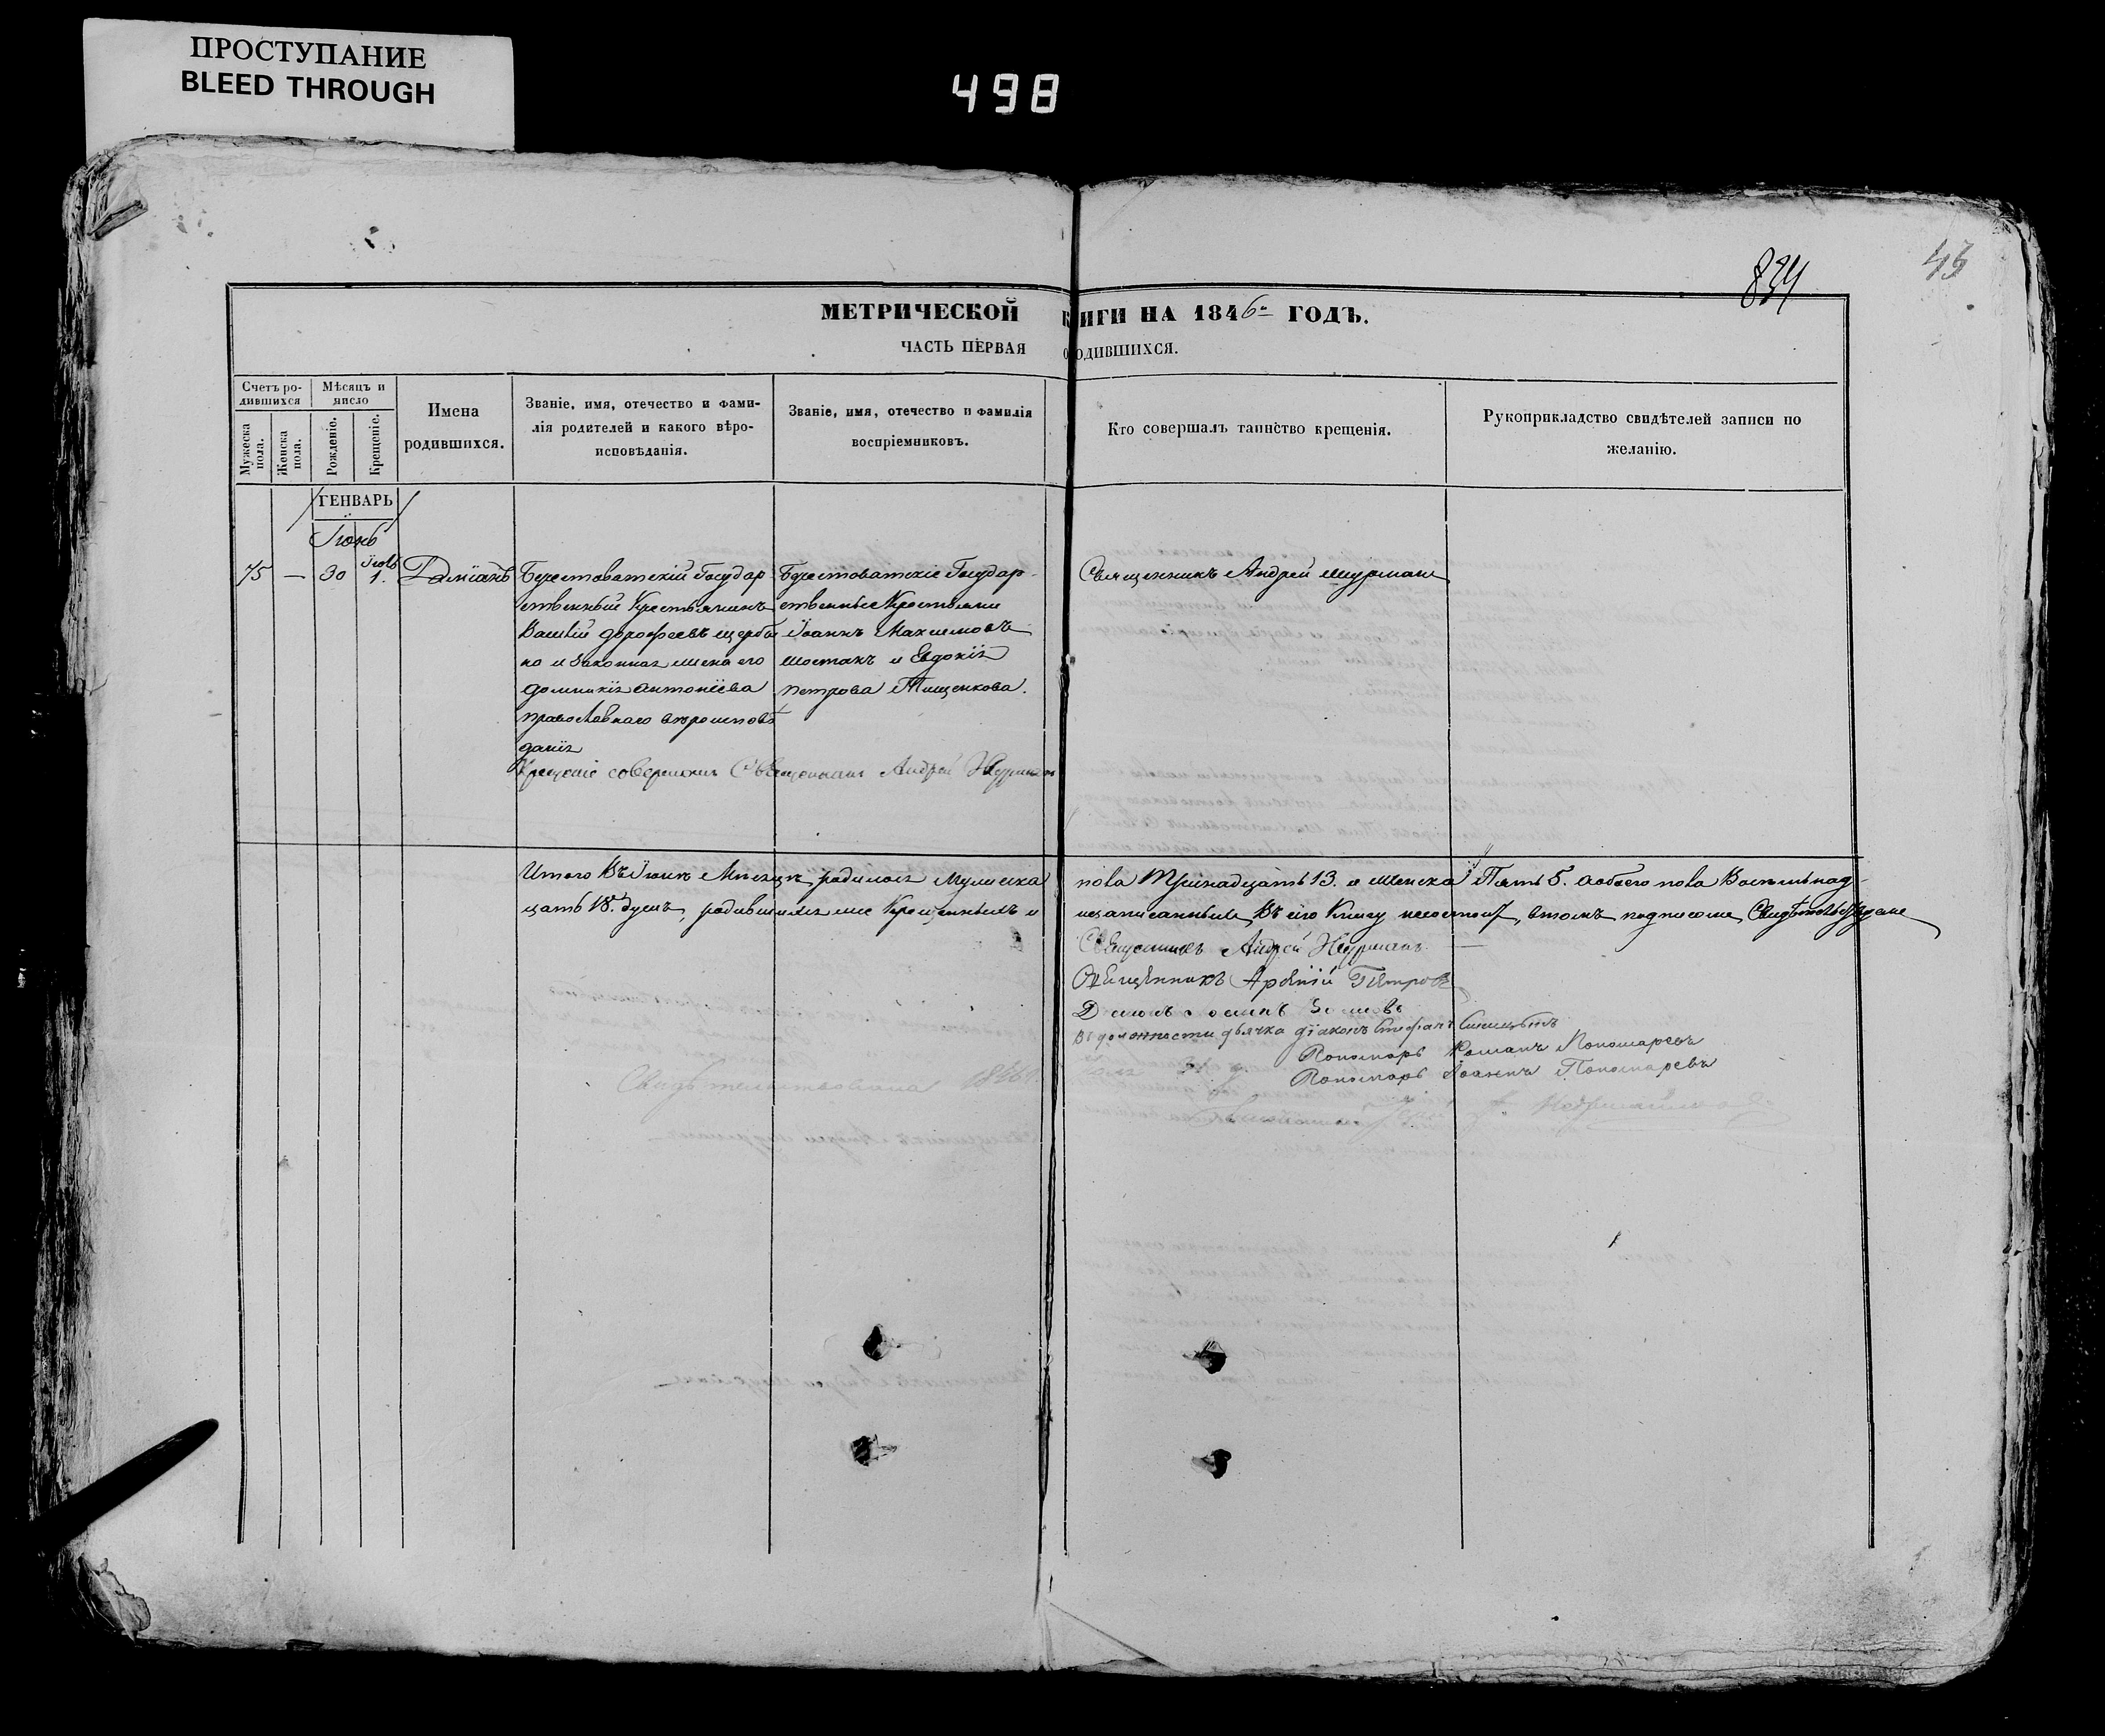 ПРОСТУПАНИЕ
BLEED THROUGH
498
834
43
МЕТРИЧЕСКОЙ КНИГИ НА 1846й ГОДЪ.
ЧАСТЬ ПЕРВАЯ О РОДИВШИХСЯ.
Счетъ родившихся
Мужеска пола.
Женска пола.
Мѣсяцъ и число
Рожденіе.
Крещеніе.
Имена родившихся.
Званіе, имя, отечество и фами-
лія родителей и какого вѣро-
исповѣданія.
Званіе, имя, отечество и фамилія
воспріемниковъ.
Кто совершалъ таинство крещенія.
Рукоприкладство свидѣтелей записи по
желанію.
ГЕНВАРЬ
Іюнь
75 — 30 Іюль 1. Даміанъ
Берестоватскій Государ
ственный Крестьянинъ
Василій Дорофеевъ Щерба
ко и Законная жена его
Домникія Антоніева
православнаго вѣроисповѣ
данія
Берестоватскіе Государ-
ственные Крестьяни
Іоаннъ Максимовъ
Шостакъ и Евдокія
Петрова Тищенкова.
Священникъ Андрей Шурман
Крещеніе совершилъ Священникъ Андрей
Итого Въ Іюнѣ Мѣсяцѣ родилось Мужеска пола Тринадцать 13. и Женска Пять 5. а обоего пола Восемьнад-
цать 18. душъ, родившихся же Крещенныхъ и незаписанныхъ Въ сію Книгу несостоит, втомъ подписомъ Свидѣтельствуем
Священникъ Андрей
Священникъ Арсеній Петровъ
Въ должности дьячка діаконъ Стефанъ
Пономарь Романъ Пономаревъ
Пономарь Іоаннъ Пономаревъ
Свидѣтельствована 1846